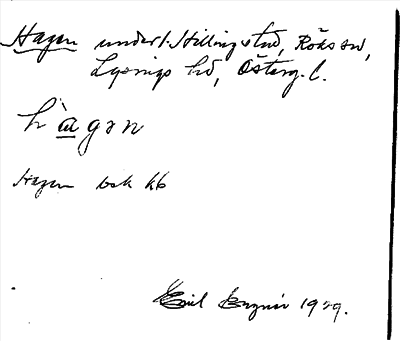 Hagen under l. Hillingstad, Röks sn,
Lysings hd, Österg. l.
h`agən
Hagen bsk kb
Emil 1929.